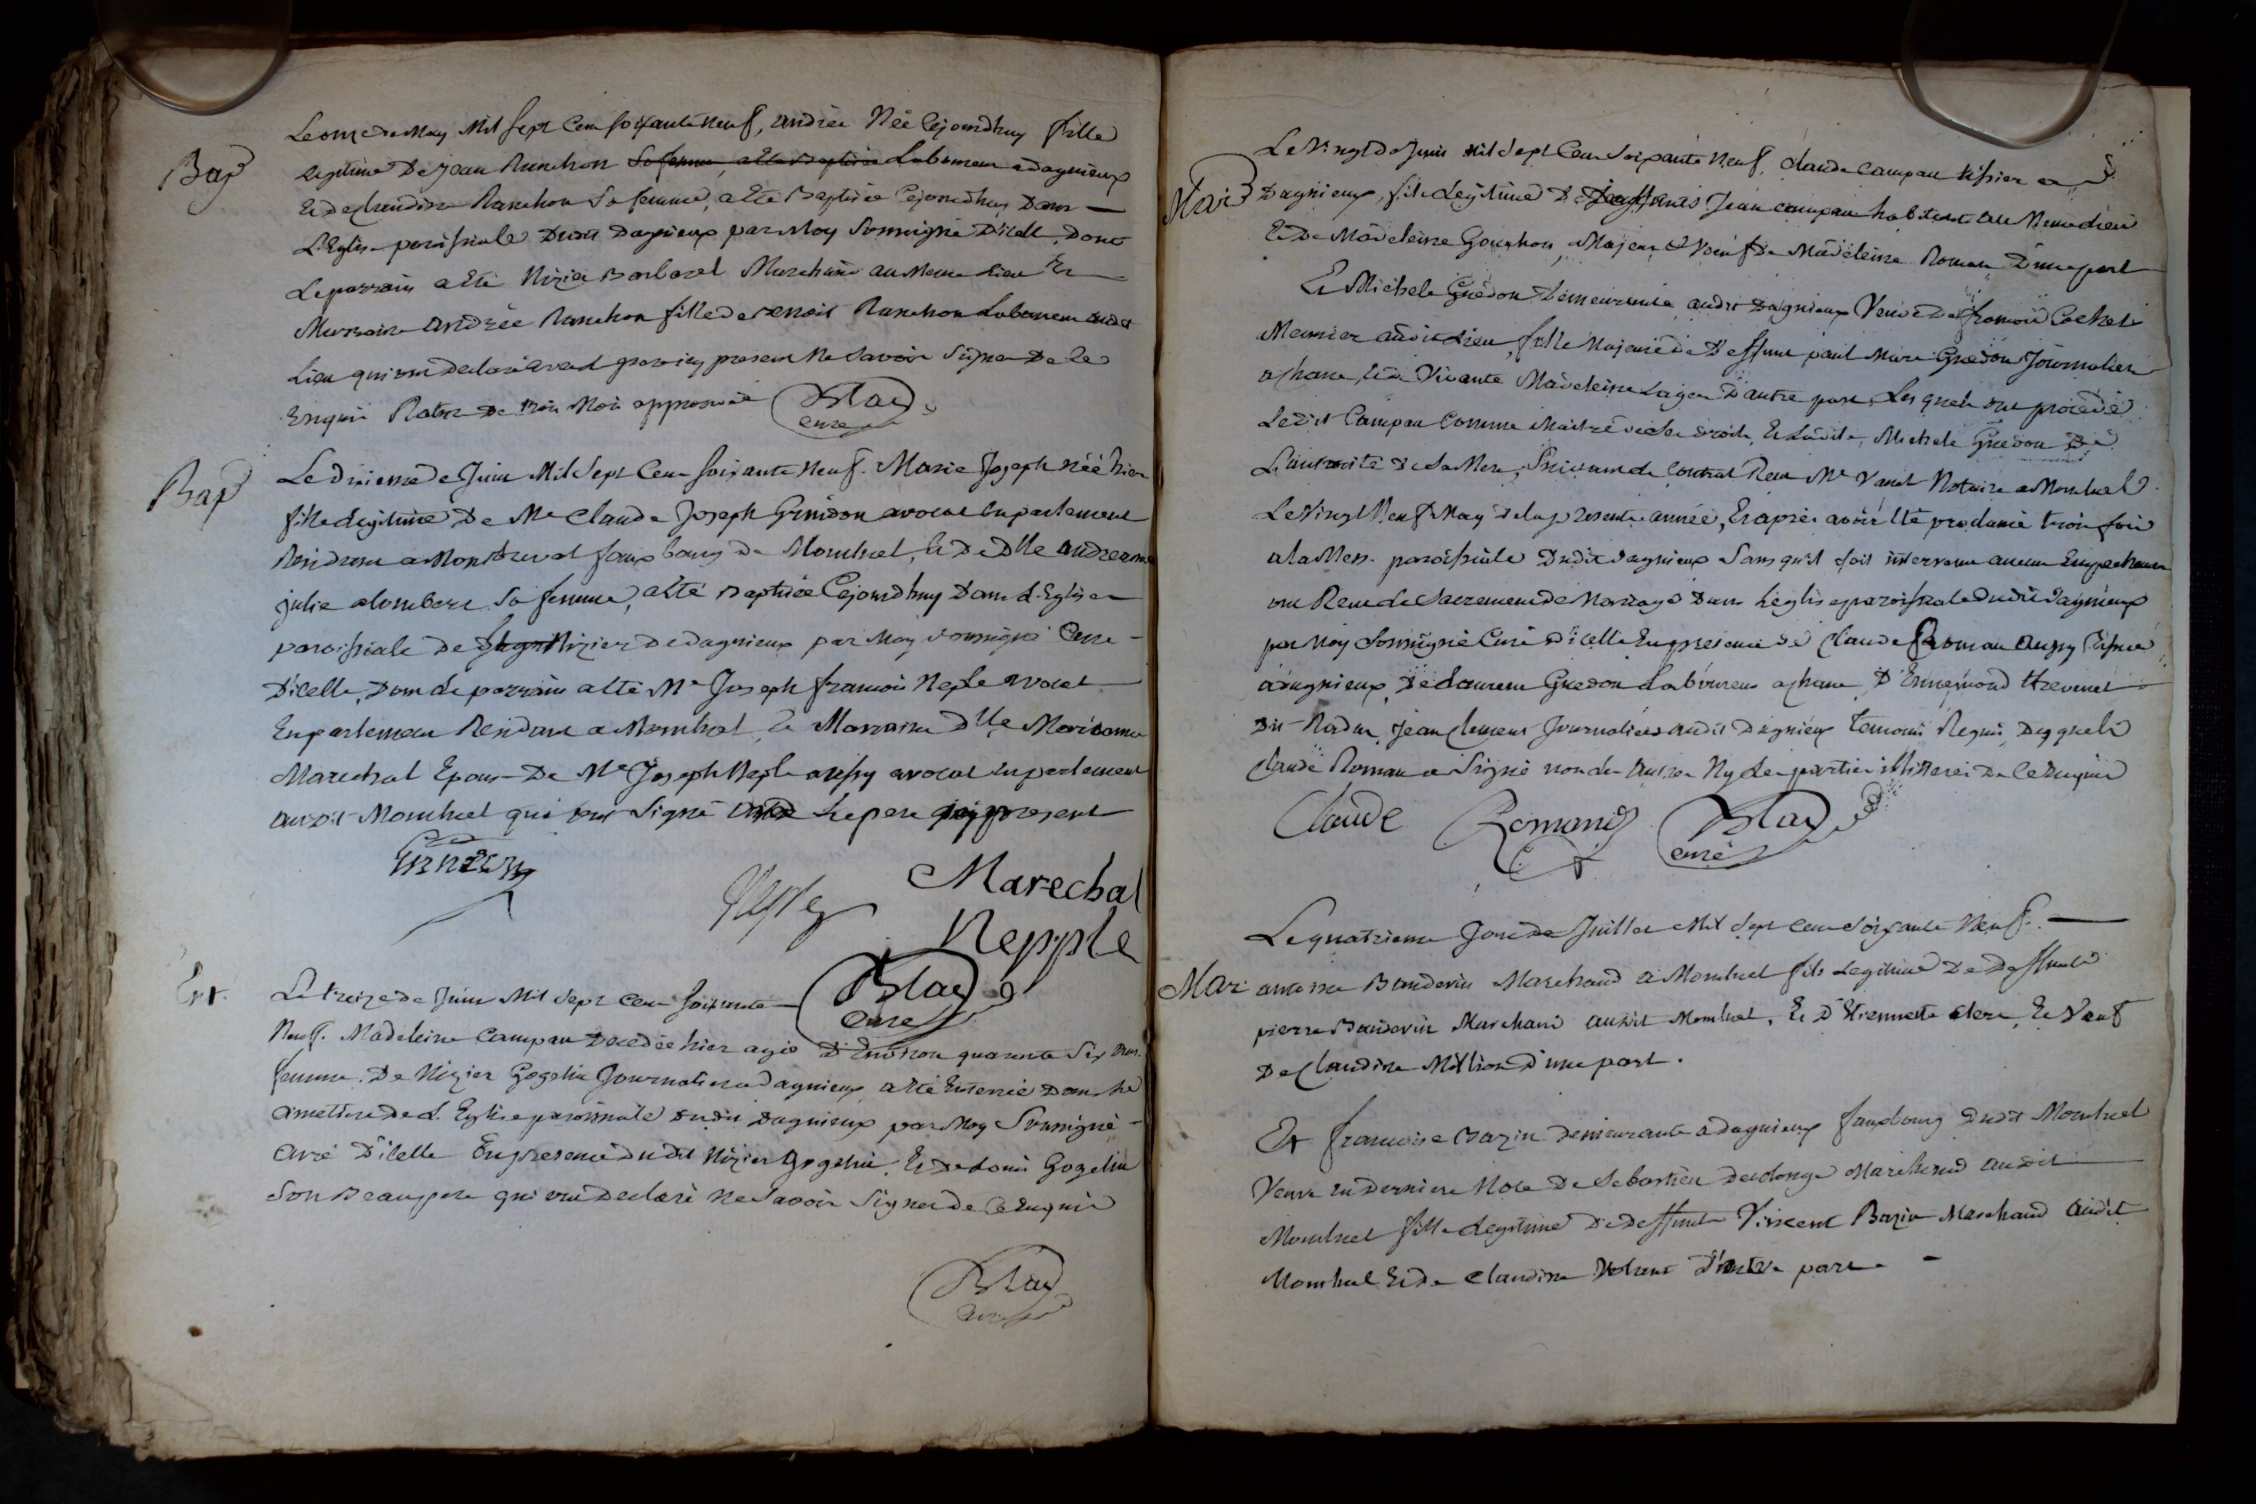 Bap
Le onze May Mil sept Cen soixante neuf, andrée Née Cejourdhuy fille
legitime De jean Ranchon Sa femme, a ete Baptisée Laboureur a dagnieux
Et de claudine Ranchon Sa femme, a été Baptisée Cejourdhuy Dans
L'Eglise paroissiale Dudit Dagnieux par Moy Soussigné D'icelle, Dont
Le parrain a été Nizier Barbaret Marchand au Meme Lieu Et
Marraine andrée Ranchon fille de Benoit Ranchon Laboureur audit
Lieu qui ont declaré avec present Ne Savoir Signer De Ce
Enquis De trois Mots approuvé
Blad
curé
Bap
Le Dixieme de Juin Mil Sept Cen soixante Neuf. Marie Joseph née hier
fille Legitime De Me Claude Joseph Grindon avocat En parlement
Residant a Montluel faux bourg de Montluel, Et De Dlle andreanne
julie alombert Sa femme, a été Baptisée Cejourdhuy Dans L'Eglise
paroissiale de Nizier De dagnieux par Moy Soussigné Curé
D'icelle, Dont Le parrain a été Me Joseph francois Neple avocat
En parlement Residant a Montluel, la Marraine Dlle
Marechal Epouse De Me Joseph Neple aussy avocat En parlement
audit Montluel qui ont Signé Le pere present
Marechal
Nepple
Blad
Curé
Ent.
Le treize de Juin Mil Sept Cen soixante
Neuf. Madeleine Campan Decedée hier agée D'Environ quarante Six ans.
femme De Nizier Gogelin Journalier a Dagnieux a été Enterrée Dans Le
Cimetiere de L'Eglise paroissiale Dudit Dagnieux par Moy Soussigné
Curé D'icelle En presence dudit Nizier Gogelin Et De Louis Gogelin
Son Beaupere qui ont Declaré Ne Savoir Signer de Ce Enquis
Blad
curé
Mar
Le Vingt De Juin Mil Sept Cen Soixante Neuf, Claude Campan tissier a
Dagnieux, fils Legitime De Jean Campan habitant
Et De Madeleine Gonchon, Majeur & Veuf De Madeleine Roman D'une part
Et Michele Guédon Demeurante audit Dagnieux Veuve De francois Cochet
Meunier audit Lieu, fille Majeure De Deffunt paul Marc Guédon Journalier
a chane, Et De Vivante Madeleine Lager D'autre part, Les quels ont procedé
Ledit Campan Comme Maitre de Ses droits, Et Ladite Michele Guedon De
L'autorité De Sa Mere, Suivant le Contrat Reçu Me Vanel Notaire a Montluel
Le Vingt Neuf May De la presente année, Et aprés avoir été proclamé trois fois
a la Messe paroissiale Dudit Dagnieux Sans qu'il Soit intervenu aucun Empechement
ont Reçu Le Sacrement De Mariage Dans L'eglise paroissiale Dudit Dagnieux
par Moy Soussigné Curé D'icelle En presence de Claude Roman aussy tissier
a Dagnieux De Laurent Guedon Laboureur a chane, D'Ennemond threvenet
Dit Nadin, Jean Clement Journaliers audit Dagnieux temoins Requis, Des quels
Claude Roman a Signé non les autres Ny Les parties illitterées De Ce Enquis
Claude Romand
Blad
curé
Mar
Le quatrieme Jour de Juillet Mil Sept Cen Soixante Neuf.
antoine Baudevin Marchand a Montluel fils Legitime De Deffunt
pierre Baudevin Marchand audit Montluel, Et D'Etiennette Clerc, Et Veuf
De Claudine Million D'une part.
Et francoise Bazin Demeurante a Dagnieux fauxbourg Dudit Montluel
Veuve En Derniere Noce De Sebastien Marchand audit
Montluel fille Legitime De Deffunt Vincent Bazin Marchand audit
Montluel Et De Claudine D'autre part